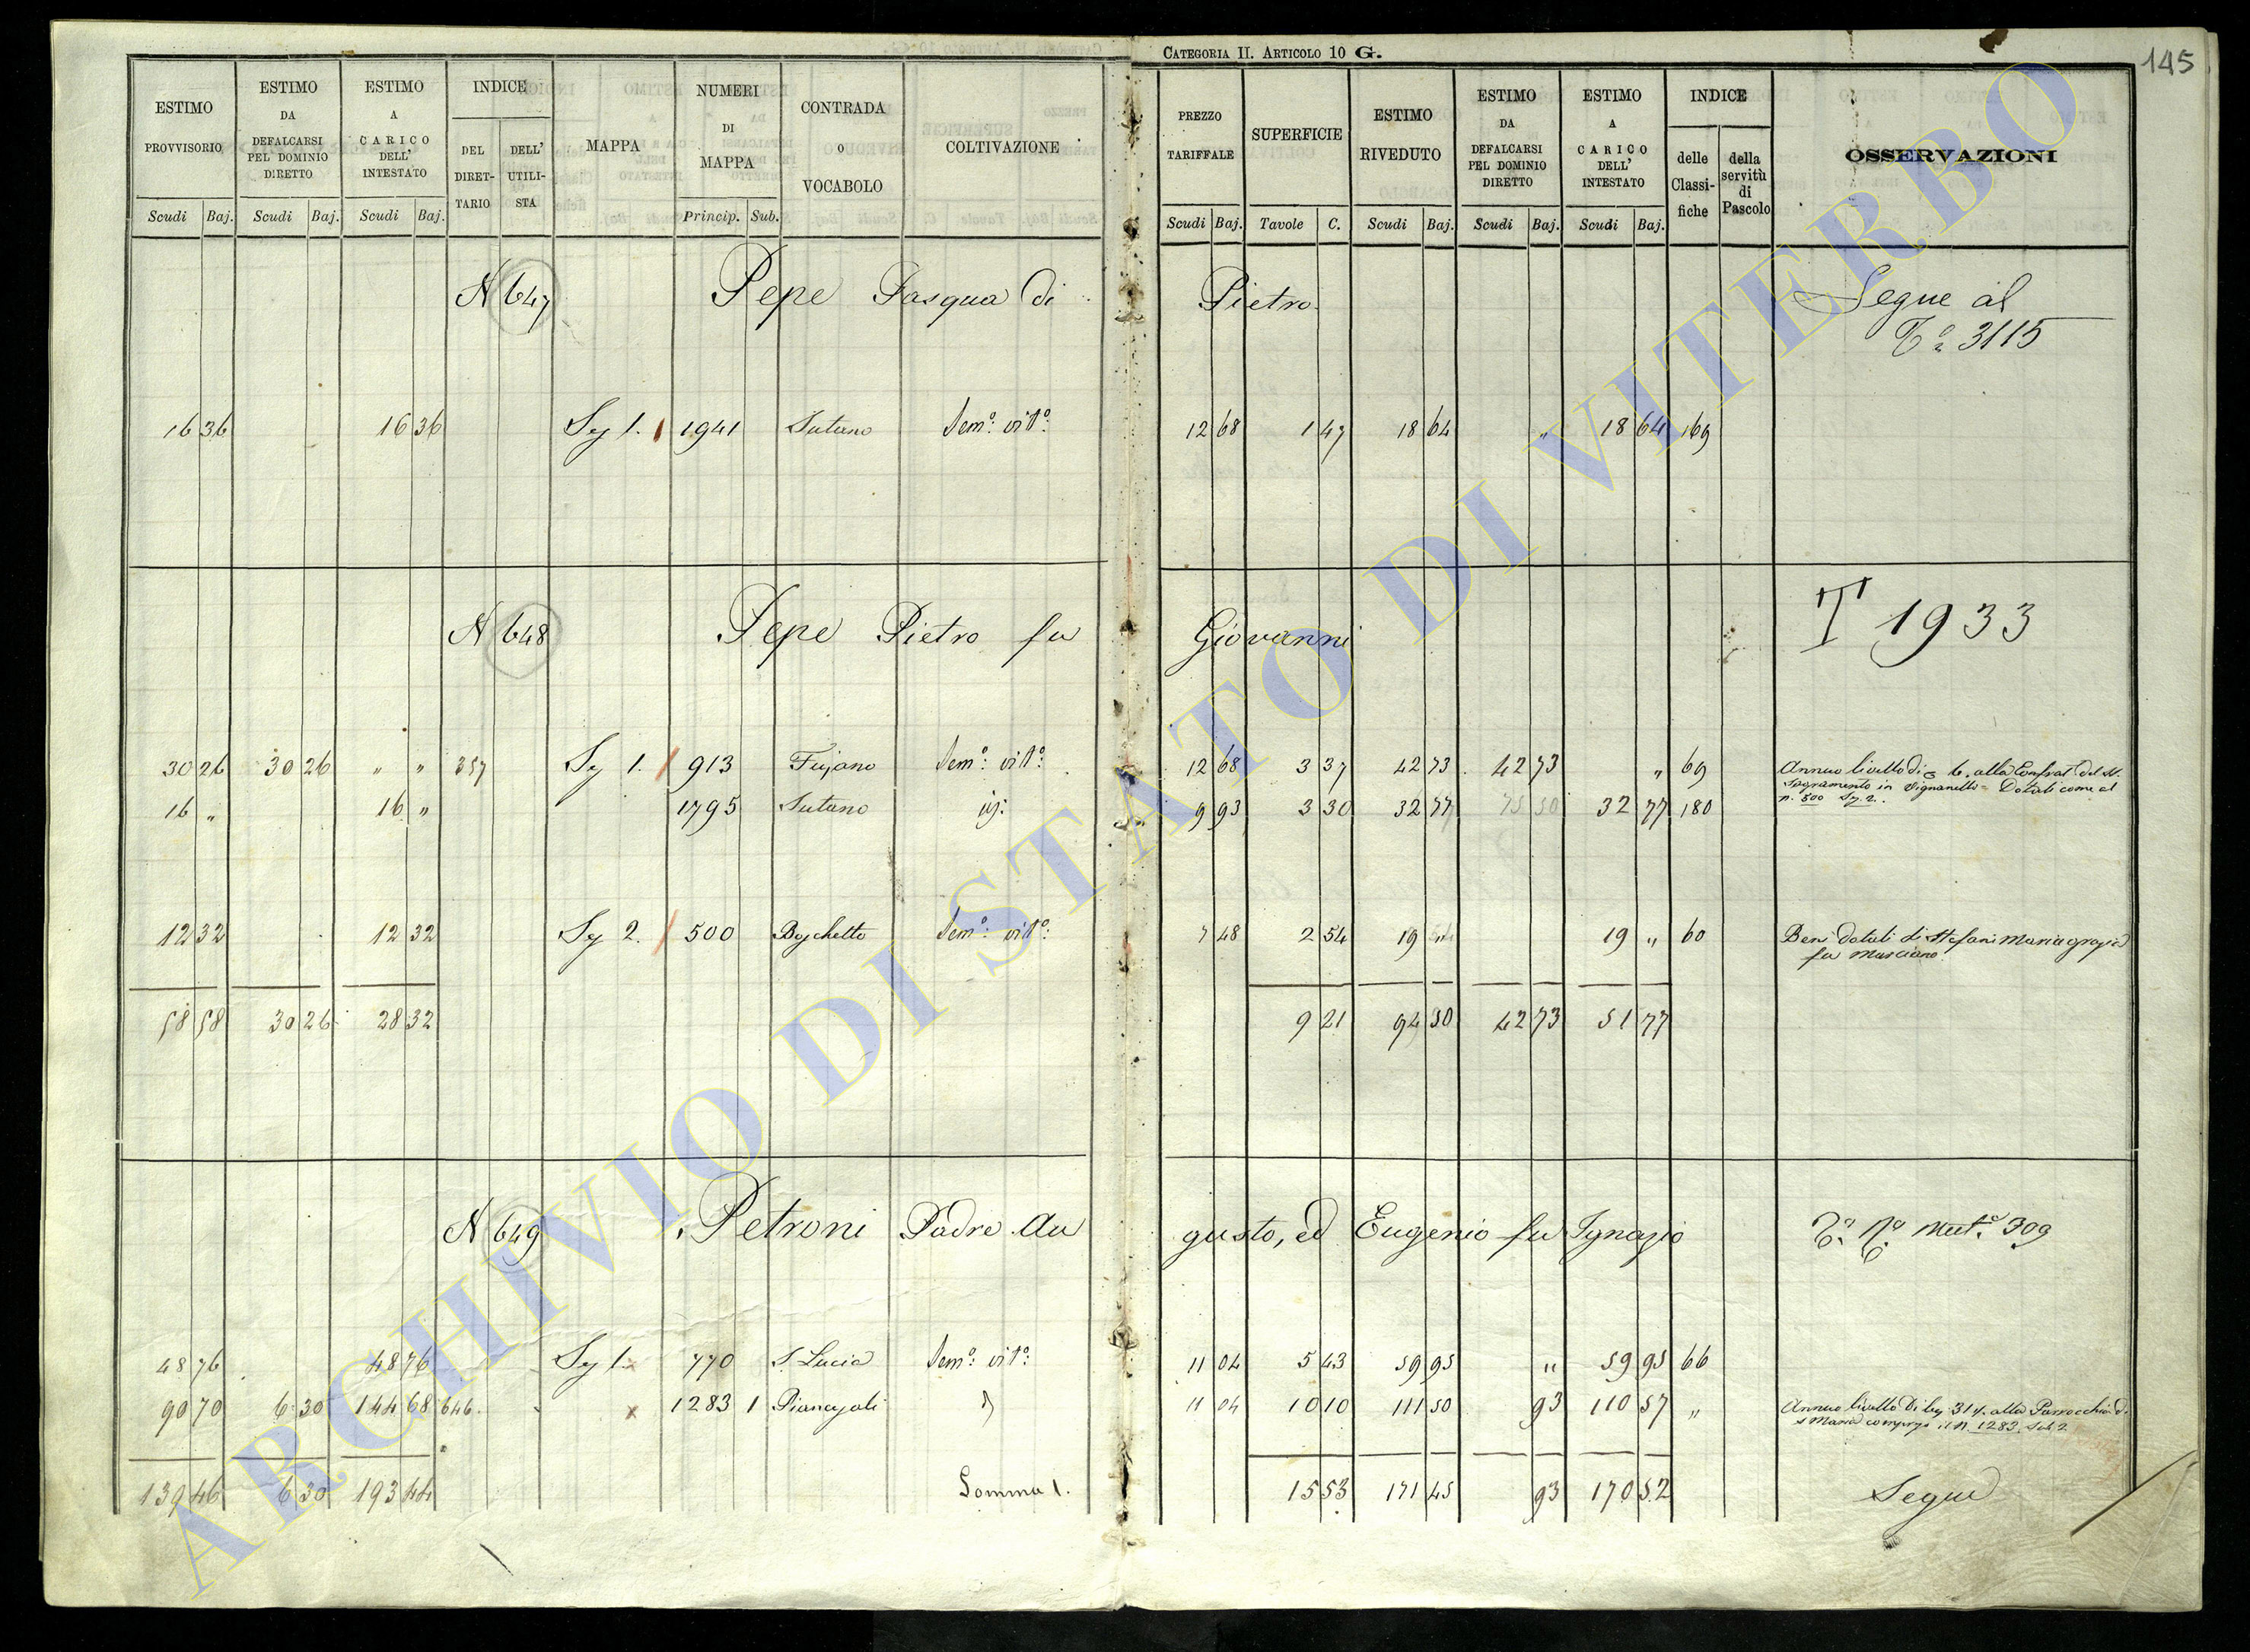 CATEGORIA II. ARTICOLO 10 G.
145
ESTIMO PROVVISORIO Scudi Baj.
ESTIMO DA DEFALCARSI PEL DOMINIO DIRETTO Scudi Baj.
ESTIMO A CARICO DELL' INTESTATO Scudi Baj.
INDICE DEL DIRET- TARIO DELL' UTILI- STA
MAPPA
NUMERI DI MAPPA Princip. Sub.
CONTRADA O VOCABOLO
COLTIVAZIONE
PREZZO TARIFFALE Scudi Baj.
SUPERFICIE Tavole C.
ESTIMO RIVEDUTO Scudi Baj.
ESTIMO DA DEFALCARSI PEL DOMINIO DIRETTO Scudi Baj.
ESTIMO A CARICO DELL' INTESTATO Scudi Baj.
INDICE delle Classi- fiche della servitù di Pascolo
OSSERVAZIONI
N 647 Pepe Pasqua di Pietro Segue al
3115
16 36 16 36 Sez 1. 1941 Sutano Sem.o vit.o 12 68 1 47 18 64 " 18 64 169
N 648 Pepe Pietro fu Giovanni T 1933
30 26 30 26 " " 357 Sez 1. 913 Sem.o vit.o 12 68 3 37 42 73 42 73 " 69 Annuo livello di 6. alla Confrat. del SS.
Sagramento in Vignanello = Dotali come al
n. 500 Sez. 2.
16 " 16 " 1795 Sutano 9 93 3 30 32 77 32 77 180
12 32 12 32 Sez 2. 500 Boschetto Sem.o vit.o 7 48 2 54 19 " 19 " 60 Beni dotali di Stefani Mariagrazia
fu Marciano
58 58 30 26 28 32 9 21 94 50 42 73 51 77
N 649 Petroni Padre Augusto, ed Eugenio fu Ignazio Mut.e 309
48 76 48 76 Sez 1. 770 S. Lucia Sem.o vit.o 11 04 5 43 59 95 " 59 95 66
90 70 6 30 144 68 646 1283 1 11 04 10 10 111 50 93 110 57 " Annuo livello di alla Parrocchia di
S Maria compreso il N. 1283 Sub 2
139 46 6 30 193 44 Somma 1. 15 53 171 45 93 170 52 Segue
ARCHIVIO DI STATO DI VITERBO